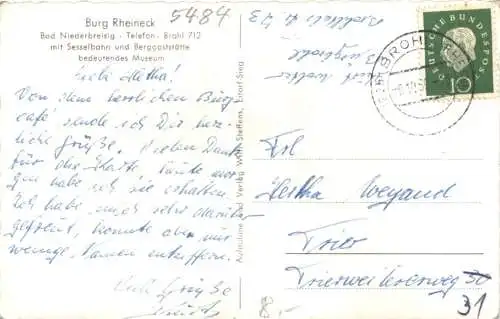 5484
Burg Rheineck
Bad Niederbreisig - Telefon - Brohl 712
mit Sesselbahn und Berggaststätte
bedeutendes Museum
Liebe Hertha!
Von dem herrlichen Burg-
cafe sende ich Dir herz-
liche Grüße. Vielen Dank
für die Karte. Heute mor-
gen habe ich sie erhalten.
Ich habe mich sehr darüber
gefreut, konnte aber nur
wenige Namen entziffern.
Viele Grüße
Aufnahme und Verlag Wilh. Steffens, Eitorf-Sieg
BROHL
DEUTSCHE BUNDESPOST
10
Frl
Hertha Weyand
Trier
Trierweilererweg 30
31
8,-